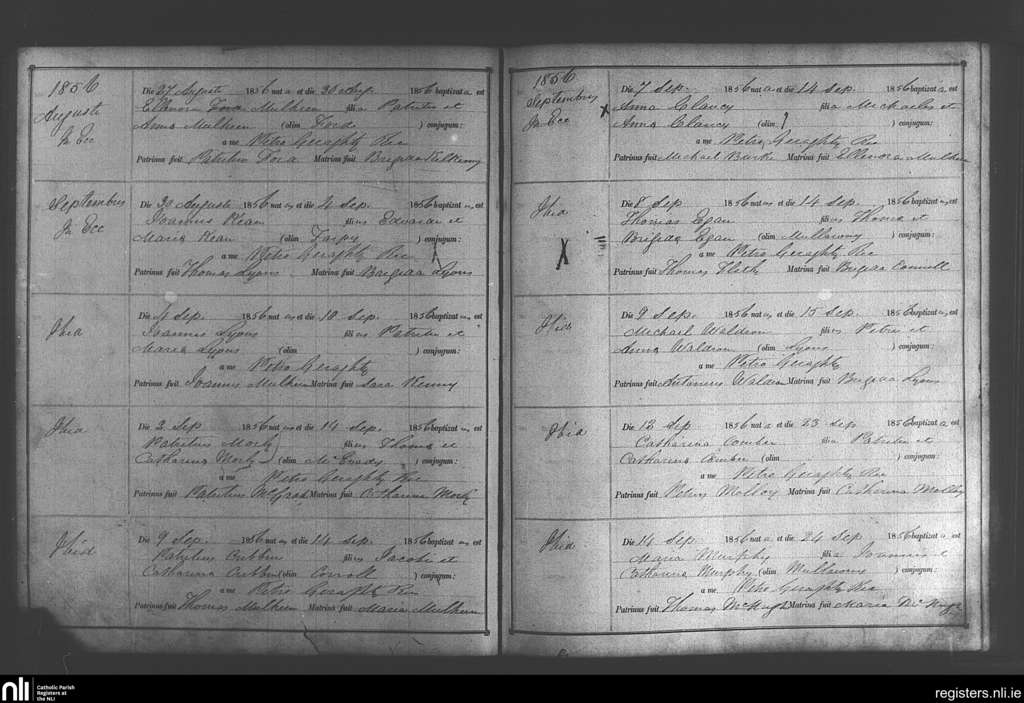 1856
Auguste
In Ecc
Die 27 Auguste 1856 nat a et die 30 Aug. 1856 baptizat a est
Ellenora Mulheen filia Patritii et
Anna Mulheen (olim Ford ) conjugum:
a me Petro Geraghty Rec
Patrinus fuit Patritius Matrina fuit Brigida Kilkenny
Septembris
In Ecc
Die 30 Auguste 1856 nat us et die 4 Sep. 1856 baptizat us est
Joannus Kean filius Edvardi et
Maria Kean (olim ) conjugum:
a me Petro Geraghty Rec
Patrinus fuit Thomas Lyons Matrina fuit Brigida Lyons
Ibid
Die 4 Sep. 1856 nat us et die 10 Sep. 1856 baptizat us est
Joannus Lyons filius Patritii et
Maria Lyons (olim ) conjugum:
a me Petro Geraghty
Patrinus fuit Joannus Mulheen Matrina fuit Sara Kenny
Ibid
Die 2 Sep 1856 nat us et die 14 Sep. 1856 baptizat us est
Patritius filius Thoma et
Catharina (olim ) conjugum:
a me Petro Geraghty Rec
Patrinus fuit Patritius Matrina fuit Catharina
Ibid
Die 9 Sep. 1856 nat us et die 14 Sep. 1856 baptizat us est
Patritius filius Jacobi et
Catharina (olim ) conjugum:
a me Petro Geraghty Rec
Patrinus fuit Thomas Mulheen Matrina fuit Maria Mulheen
1856
Septembris
In Ecc
X
Die 7 Sep. 1856 nat a et die 14 Sep. 1856 baptizat a est
Anna Clancy filia Michaelis et
Anna Clancy (olim ? ) conjugum:
a me Petro Geraghty Rec
Patrinus fuit Michael Burke Matrina fuit Ellenora Mulheen
Ibid
X
Die 8 Sep 1856 nat us et die 14 Sep. 1856 baptizat us est
Thomas Egan filius Thoma et
Brigida Egan (olim ) conjugum:
a me Petro Geraghty Rec
Patrinus fuit Thomas Matrina fuit Brigida Connell
Ibid
Die 9 Sep. 1856 nat us et die 15 Sep. 1856 baptizat us est
Michael Waldron filius Petri et
Anna Waldron (olim Lyons ) conjugum:
a me Petro Geraghty
Patrinus fuit Antonius Waldron Matrina fuit Brigida Lyons
Ibid
Die 12 Sep 1856 nat a et die 23 Sep 1856 baptizat a est
Catharina Comber filia Patritii et
Catharina Comber (olim ) conjugum:
a me Petro Geraghty Rec
Patrinus fuit Petrus Molloy Matrina fuit Catharina Molloy
Ibid
Die 14 Sep. 1856 nat a et die 24 Sep 1856 baptizat a est
Maria Murphy filia Joannis et
Catharina Murphy (olim ) conjugum:
a me Petro Geraghty Rec
Patrinus fuit Thomas McHugh Matrina fuit Maria McHugh
nli
Catholic Parish
Registers at
the NLI
registers.nli.ie